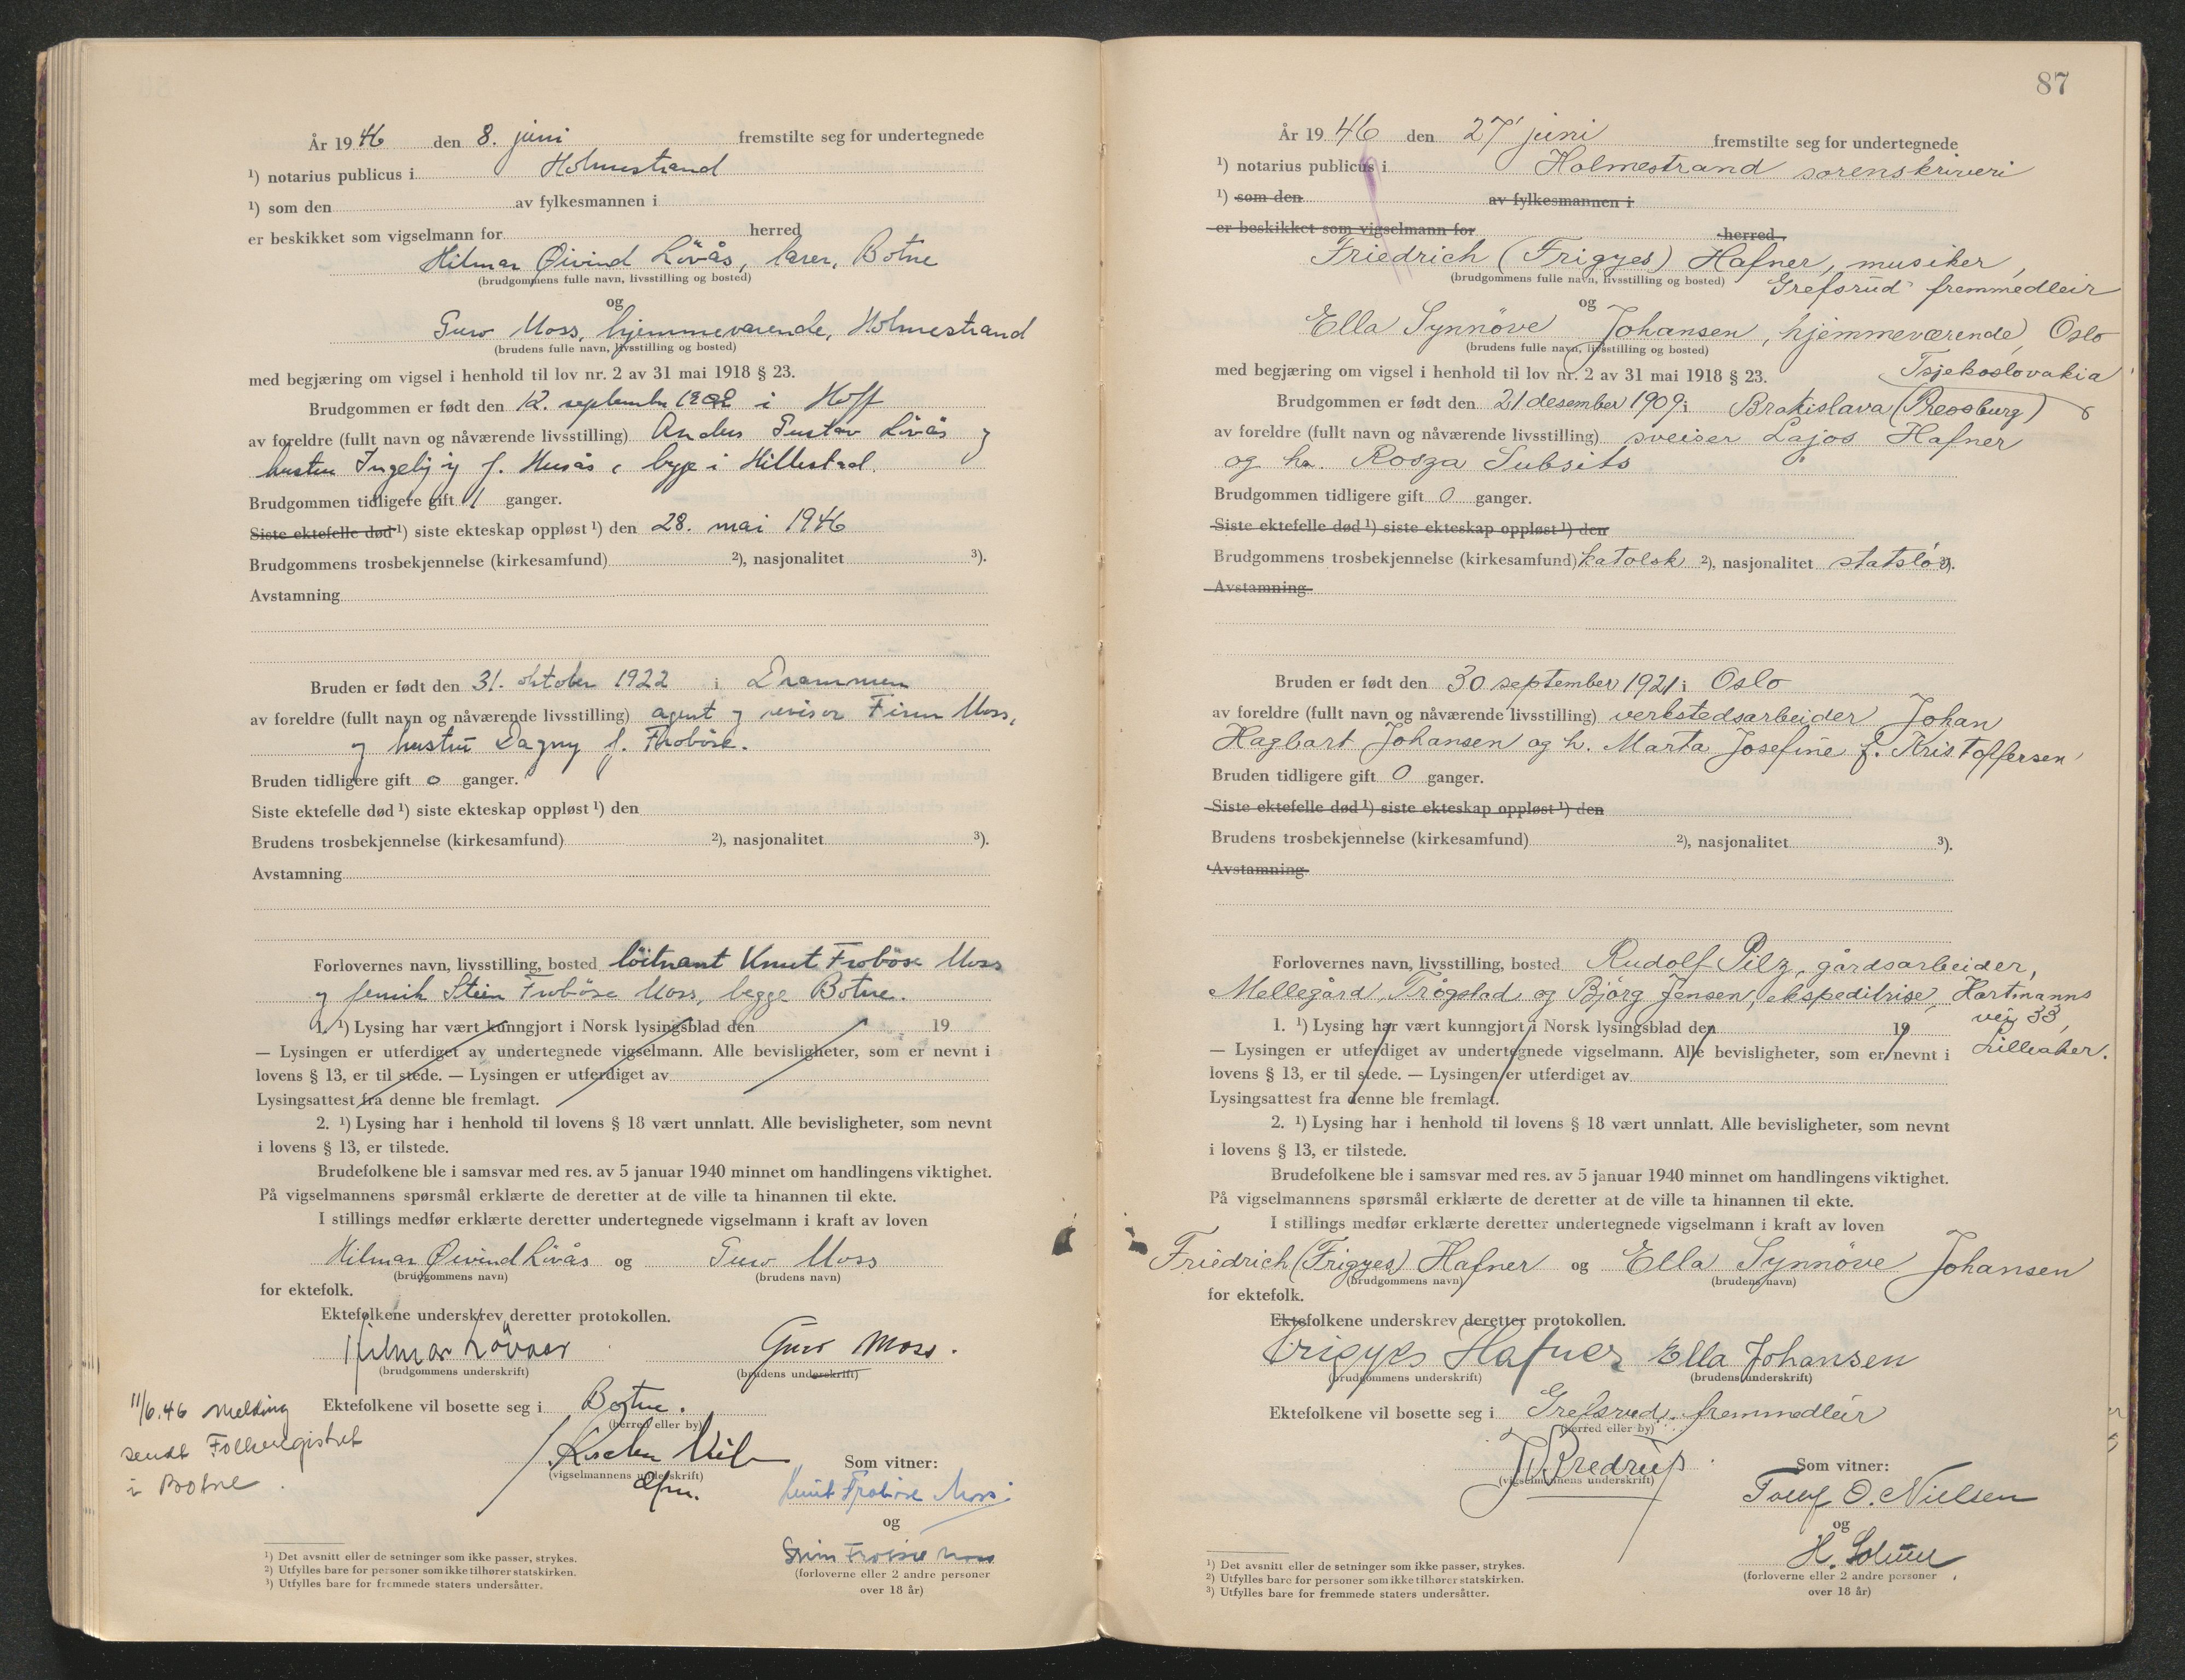 År 1946 den 8. juni fremstilte seg for undertegnede
¹) notarius publicus i Holmestrand
¹) som den av fylkesmannen i
er beskikket som vigselmann for herred
Hilmar Øivind Lövås, lærer, Botne
(brudgommens fulle navn, livsstilling og bosted)
og
Guro Moss, hjemmeværende, Holmestrand
(brudens fulle navn, livsstilling og bosted)
med begjæring om vigsel i henhold til lov nr. 2 av 31 mai 1918 § 23.
Brudgommen er født den 12. september 1902 i Hoff
av foreldre (fullt navn og nåværende livsstilling) Anders Gustav Lövås og
hustru f. Husås, begge i Hillestad.
Brudgommen tidligere gift 1 ganger.
Siste ektefelle død ¹) siste ekteskap oppløst ¹) den 28. mai 1946
Brudgommens trosbekjennelse (kirkesamfund) ²), nasjonalitet ³).
Avstamning
Bruden er født den 31. oktober 1922 i Drammen
av foreldre (fullt navn og nåværende livsstilling) agent og revisor Finn Moss,
og hustru Dagny f. Froböse.
Bruden tidligere gift 0 ganger.
Siste ektefelle død ¹) siste ekteskap oppløst ¹) den
Brudens trosbekjennelse (kirkesamfund) ²), nasjonalitet ³).
Avstamning
Forlovernes navn, livsstilling, bosted löitnant Knut Froböse Moss
og fenrik Stein Froböse Moss, begge Botne.
1. ¹) Lysing har vært kunngjort i Norsk lysingsblad den 19
— Lysingen er utferdiget av undertegnede vigselmann. Alle bevisligheter, som er nevnt i
lovens § 13, er til stede. — Lysingen er utferdiget av
Lysingsattest fra denne ble fremlagt.
2. ¹) Lysing har i henhold til lovens § 18 vært unnlatt. Alle bevisligheter, som nevnt
i lovens § 13, er tilstede.
Brudefolkene ble i samsvar med res. av 5 januar 1940 minnet om handlingens viktighet.
På vigselmannens spørsmål erklærte de deretter at de ville ta hinannen til ekte.
I stillings medfør erklærte deretter undertegnede vigselmann i kraft av loven
Hilmar Øivind Lövås og Guro Moss
(brudgommens navn) (brudens navn)
for ektefolk.
Ektefolkene underskrev deretter protokollen.
Hilmar Lövaas Guro Moss.
(brudgommens underskrift) (brudens underskrift)
Ektefolkene vil bosette seg i Botne.
(herred eller by)
11/6.46 melding
sendt Folkeregistret
i Botne.
(vigselmannens underskrift)
Som vitner:
Knut Froböse Moss
og
Stein Froböse Moss
(forloverne eller 2 andre personer
over 18 år)
¹) Det avsnitt eller de setninger som ikke passer, strykes.
²) Utfylles bare for personer som ikke tilhører statskirken.
³) Utfylles bare for fremmede staters undersåtter.
87
År 1946 den 27 juni fremstilte seg for undertegnede
¹) notarius publicus i Holmestrand sorenskriveri
¹) som den av fylkesmannen i
er beskikket som vigselmann for herred
Friedrich (Frigyes) Hafner, musiker,
(brudgommens fulle navn, livsstilling og bosted) Grefsrud fremmedleir
og
Ella Synnöve Johansen, hjemmeværende, Oslo
(brudens fulle navn, livsstilling og bosted)
med begjæring om vigsel i henhold til lov nr. 2 av 31 mai 1918 § 23. Tsjekoslovakia
Brudgommen er født den 21 desember 1909 i Bratislava (Pressburg)
av foreldre (fullt navn og nåværende livsstilling) sveiser Lajos Hafner
og h. Rosza Subsits
Brudgommen tidligere gift 0 ganger.
Siste ektefelle død ¹) siste ekteskap oppløst ¹) den
Brudgommens trosbekjennelse (kirkesamfund) katolsk ²), nasjonalitet statslös ³).
Avstamning
Bruden er født den 30 september 1921 i Oslo
av foreldre (fullt navn og nåværende livsstilling) verkstedsarbeider Johan
Hagbart Johansen og h. Marta Josefine f. Kristoffersen
Bruden tidligere gift 0 ganger.
Siste ektefelle død ¹) siste ekteskap oppløst ¹) den
Brudens trosbekjennelse (kirkesamfund) ²), nasjonalitet ³).
Avstamning
Forlovernes navn, livsstilling, bosted Rudolf Pilz, gårdsarbeider,
Mellegård, Trögstad og Björg Jensen, ekspeditrise, Hartmanns
vei 33,
Lilleaker.
1. ¹) Lysing har vært kunngjort i Norsk lysingsblad den 19
— Lysingen er utferdiget av undertegnede vigselmann. Alle bevisligheter, som er nevnt i
lovens § 13, er til stede. — Lysingen er utferdiget av
Lysingsattest fra denne ble fremlagt.
2. ¹) Lysing har i henhold til lovens § 18 vært unnlatt. Alle bevisligheter, som nevnt
i lovens § 13, er tilstede.
Brudefolkene ble i samsvar med res. av 5 januar 1940 minnet om handlingens viktighet.
På vigselmannens spørsmål erklærte de deretter at de ville ta hinannen til ekte.
I stillings medfør erklærte deretter undertegnede vigselmann i kraft av loven
Friedrich (Frigyes) Hafner og Ella Synnöve Johansen
(brudgommens navn) (brudens navn)
for ektefolk.
Ektefolkene underskrev deretter protokollen.
Frigyes Hafner Ella Johansen
(brudgommens underskrift) (brudens underskrift)
Ektefolkene vil bosette seg i Grefsrud fremmedleir
(herred eller by)
J Bredrup
(vigselmannens underskrift)
Som vitner:
O. Nielsen
og
H. Solum
(forloverne eller 2 andre personer
over 18 år)
¹) Det avsnitt eller de setninger som ikke passer, strykes.
²) Utfylles bare for personer som ikke tilhører statskirken.
³) Utfylles bare for fremmede staters undersåtter.